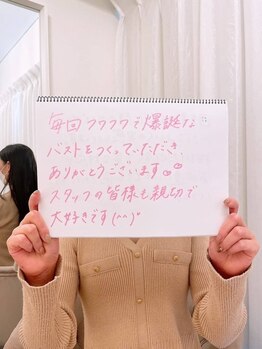 毎回フワフワで爆誕な
バストをつくっていただき、
ありがとうございます
スタッフの皆様も親切で
大好きです(^^)